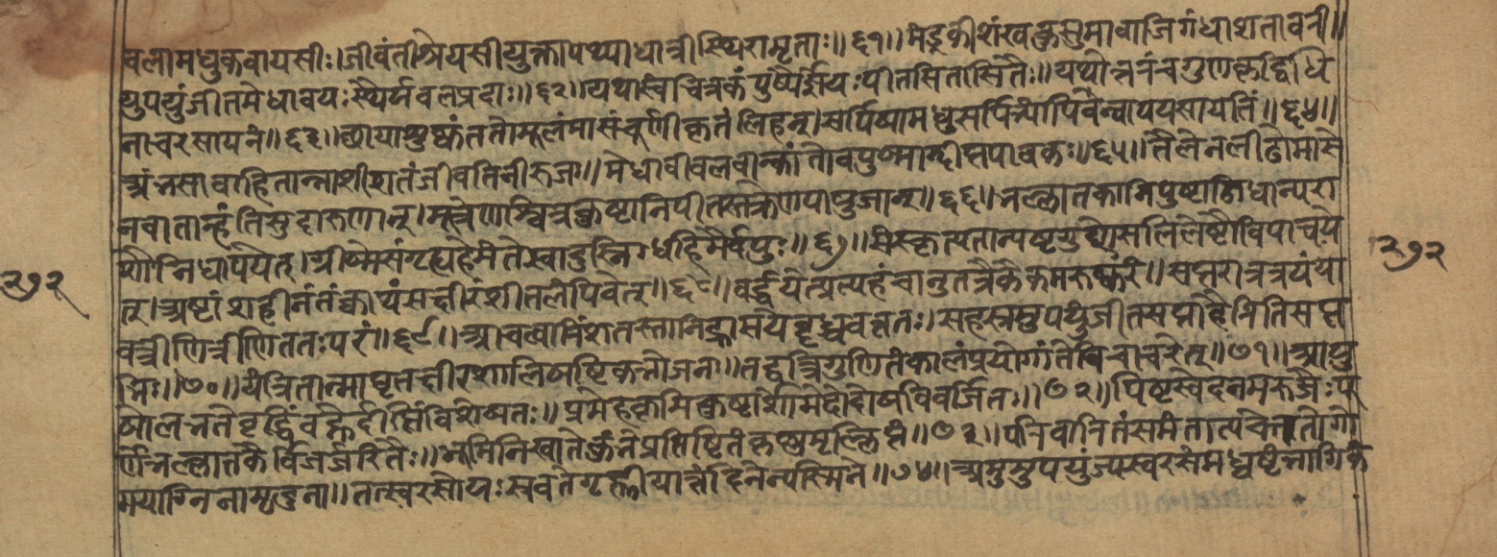 बलामधुकवायसीः।जीवंतीश्रेयसीयुक्तापथ्याधात्रीस्थिरामृताः॥६१॥मंडूकीशंखकुसुमावाजिगंधाशतावरी॥
युपयुंजीतमेधावयःस्थैर्यबलप्रदाः॥६२॥यथास्वंचित्रकंपुष्पैर्ज्ञेयःपीतसितासितैः॥यथोत्तरंचगुणवान्विधि
नाचरसायनं॥६३॥छायाशुष्कंततोमूलंमासंचूर्णीकृतंलिहन्।सर्पिषामधुसर्पिर्भ्यांपिबन्वापयसायतिं॥६४॥
अंभसावाहितान्नाशीशतंजीवतिनीरुजः॥मेधावीबलवान्कांतोवपुष्मान्दीप्तपावकः॥६५॥तैलेनलीढोमासे
नवातान्हंतिसुदारुणान्।मूत्रेणश्वित्रकुष्ठानिपीतस्तक्रेणपायुजान्॥६६॥भल्लातकानिपुष्टानिधान्यरा
शौनिधापयेत्।ग्रीष्मेसंगृह्यहेमंतेस्वादुस्निग्धहिमैर्वपुः॥६७॥संस्कृत्यतान्यष्टगुणेसलिलेष्टौविपाचये
त्।अष्टांशहीनंतंक्वाथंसक्षीरंशीतलंपिबेत्॥६८॥वर्द्धयेत्प्रत्यहंचानुतत्रैकैकमरुष्करं॥सप्तरात्रत्रयंया
वत्त्रीणित्रीणिततःपरं॥६९॥आचत्वारिंशतस्तानिह्रासयेद्वृद्धिवत्ततः।सहस्रमुपयुंजीतसप्ताहैरितिसप्त
भिः॥७०॥यंत्रितात्माघृतक्षीरशालिषष्टिकभोजनः॥तद्वत्त्रिगुणितंकालंप्रयोगांतेपिचाचरेत्॥७१॥आशु
षोलभतेवृद्धिंवह्नेर्दीप्तिंविशेषतः॥प्रमेहकृमिकुष्ठार्शोमेदोदोषविवर्जितः॥७२॥पिष्टस्वेदनमरुजैःपू
र्णंभल्लातकैर्विजर्जरितैः॥भूमिनिखातेकुंभेप्रतिष्ठितंकृष्णमृल्लिप्तं॥७३॥परिवारितंसमंतात्पचेत्ततोगो
मयाग्निनामृदुना॥तत्स्वरसोयःस्रवतेगृह्णीयात्तंदिनेन्यस्मिन्॥७४॥अमुमुपयुंज्यस्वरसंमध्वष्टंभागिकं
३७२
३७२